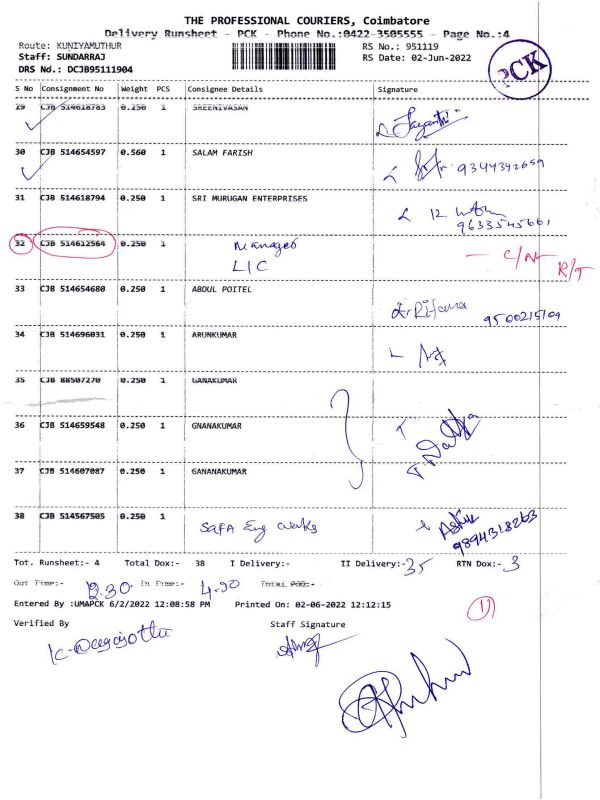 THE PROFESSIONAL COURIERS, Coimbatore
Delivery Runsheet - PCK - Phone No.:0422-3505555 - Page No.:4
Route: KUNIYAMUTHUR RS No.: 951119
Staff: SUNDARRAJ RS Date: 02-Jun-2022
DRS No.: DCJB95111904
PCK
S No Consignment No Weight PCS Consignee Details Signature
29 CJB 514618783 0.250 1 SREENIVASAN
30 CJB 514654597 0.560 1 SALAM FARISH 9344342659
31 CJB 514618794 0.250 1 SRI MURUGAN ENTERPRISES
9633545661
32 CJB 514612564 0.250 1 Manager C/N R/T
LIC
33 CJB 514654680 0.250 1 ABDUL POITEL Rifana 9500215109
34 CJB 514696031 0.250 1 ARUNKUMAR
35 CJB 88507270 0.250 1 GANAKUMAR
36 CJB 514659548 0.250 1 GNANAKUMAR
37 CJB 514607087 0.250 1 GANANAKUMAR
38 CJB 514567505 0.250 1 SAFA Eng works
9894318263
Tot. Runsheet:- 4 Total Dox:- 38 I Delivery:- II Delivery:- 35 RTN Dox:- 3
Out Time:- 12.30 In Time:- 4.30 Total
Entered By :UMAPCK 6/2/2022 12:08:58 PM Printed On: 02-06-2022 12:12:15
11
Verified By Staff Signature